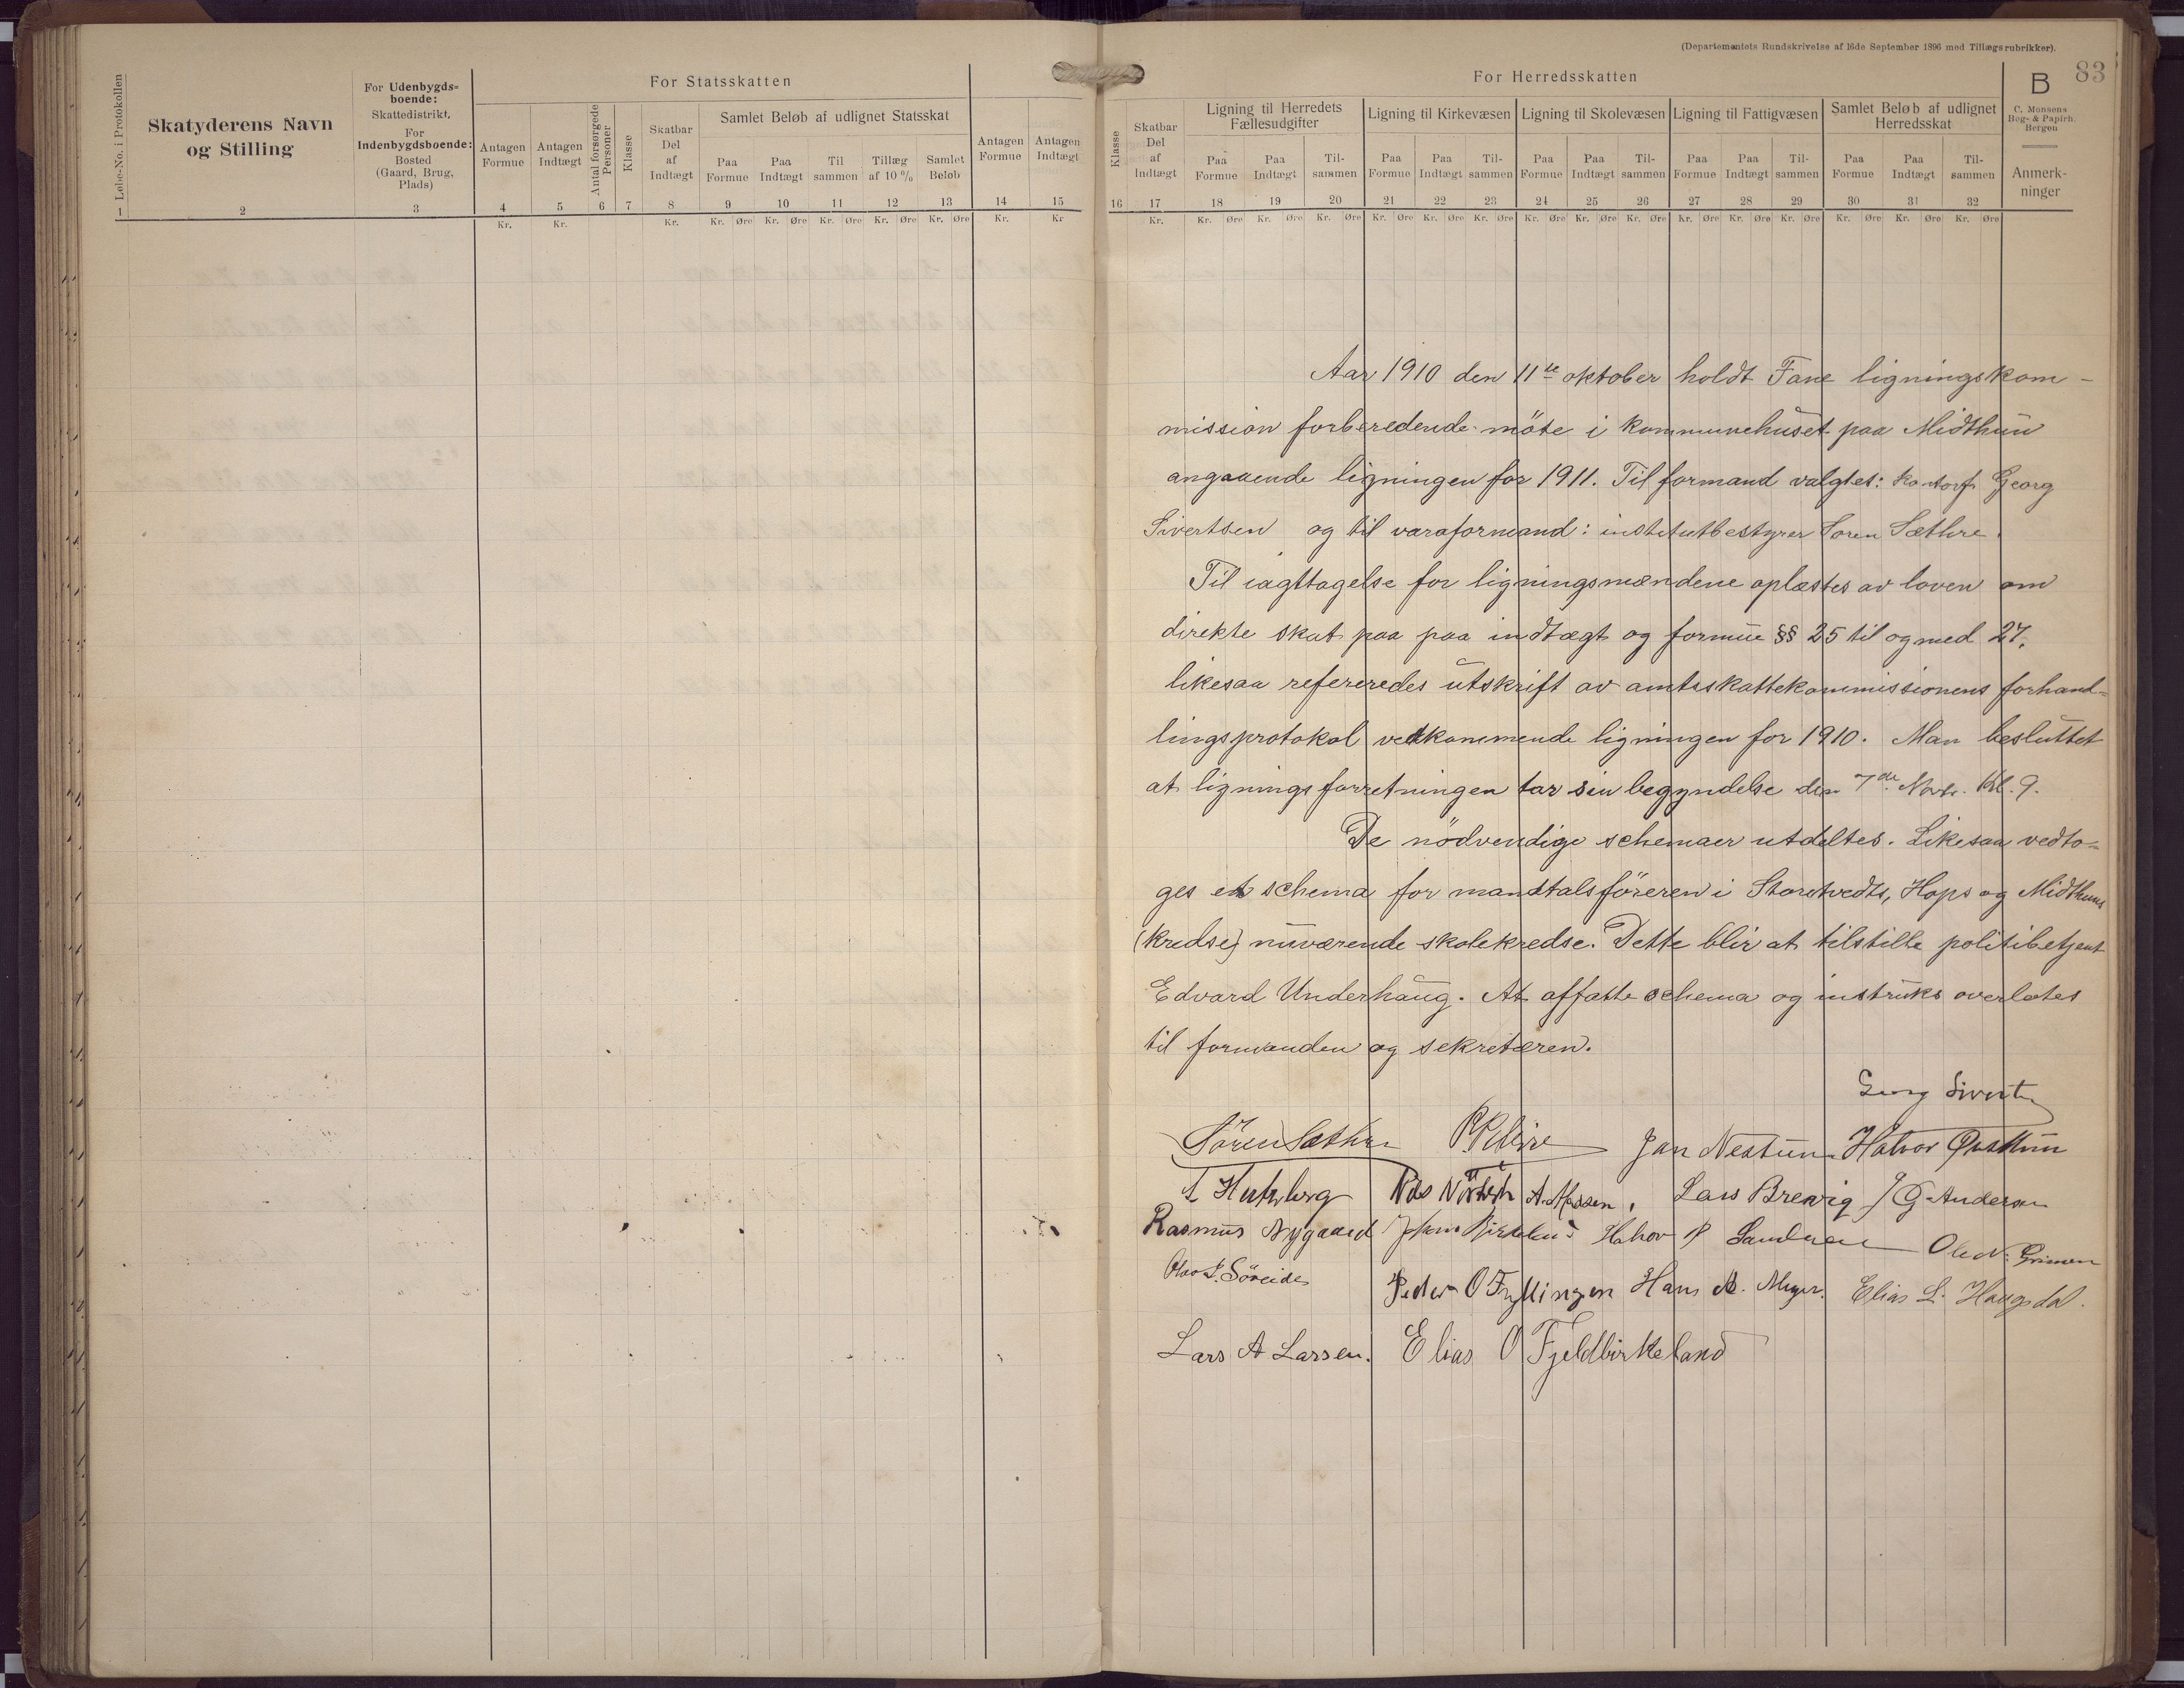 (Departementets Rundskrivelse af 16de September 1896 med Tillægsrubrikker).
83
Løbe-No. i Protokollen
Skatyderens Navn
og Stilling
For Udenbygds=
boende:
Skattedistrikt,
For
Indenbygdsboende:
Bosted
(Gaard, Brug,
Plads)
For Statsskatten
Antagen
Formue
Antagen
Indtægt
Antal forsørgede
Personer
Klasse
Skatbar
Del
af
Indtægt
Samlet Beløb af udlignet Statsskat
Paa
Formue
Paa
Indtægt
Til
sammen
Tillæg
af 10 %
Samlet
Beløb
Antagen
Formue
Antagen
Indtægt
1 2 3 4 5 6 7 8 9 10 11 12 13 14 15
Kr. Kr. Kr. Kr. Øre Kr. Øre Kr. Øre Kr. Øre Kr. Øre Kr. Kr
For Herredsskatten
Klasse
Skatbar
Del
af
Indtægt
Ligning til Herredets
Fællesudgifter
Ligning til Kirkevæsen
Ligning til Skolevæsen
Ligning til Fattigvæsen
Samlet Beløb af udlignet
Herredsskat
Paa
Formue
Paa
Indtægt
Til-
sammen
Paa
Formue
Paa
Indtægt
Til-
sammen
Paa
Formue
Paa
Indtægt
Til-
sammen
Paa
Formue
Paa
Indtægt
Til-
sammen
Paa
Formue
Paa
Indtægt
Til-
sammen
B
C. Monsens
Bog- & Papirh.
Bergen
Anmerk-
ninger
16 17 18 19 20 21 22 23 24 25 26 27 28 29 30 31 32
Kr. Kr. Øre Kr. Øre Kr. Øre Kr. Øre Kr. Øre Kr. Øre Kr. Øre Kr. Øre Kr. Øre Kr. Øre Kr. Øre Kr. Øre Kr. Øre Kr. Øre Kr. Øre
Aar 1910 den 11te oktober holdt Fane ligningskom-
mission forberedende möte i kommunehuset paa Midthun
angaaende ligningen for 1911. Til formand valgtes: Georg
Sivertsen og til varaformand: institutbestyrer Sören Sæthre.
Til iagttagelse for ligningsmændene oplæstes av loven om
direkte skat paa paa indtægt og formue §§ 25 til og med 27,
likesaa refereredes utskrift av amtsskattekommissionens forhand-
lingsprotokol vedkommende ligningen for 1910. Man besluttet
at ligningsforretningen tar sin begyndelse den 7de Novbr. Kl. 9.
De nödvendige schemaer utdeltes. Likesaa vedto-
ges et schema for mandtalsföreren i Storetvedts, Hops og Midthuns
(kredse) nuværende skolekredse. Dette blir at tilstille politibetjent
Edvard Underhaug. At affatte schema og instruks overlates
til formanden og sekretæren.
Georg Sivertsen
Sören Sæthre Jan Nestun Halvor Øvsthun
Lars Brevig J G Andersen
Rasmus Nygaard Johan Birkeland Halvor P Sandven Ole N. Grimen
Olav S. Söreide
Peder O Fyllingen Hans M. Meyer. Elias L. Haugsdal.
Lars A Larsen. Elias O Fjeldbirkeland